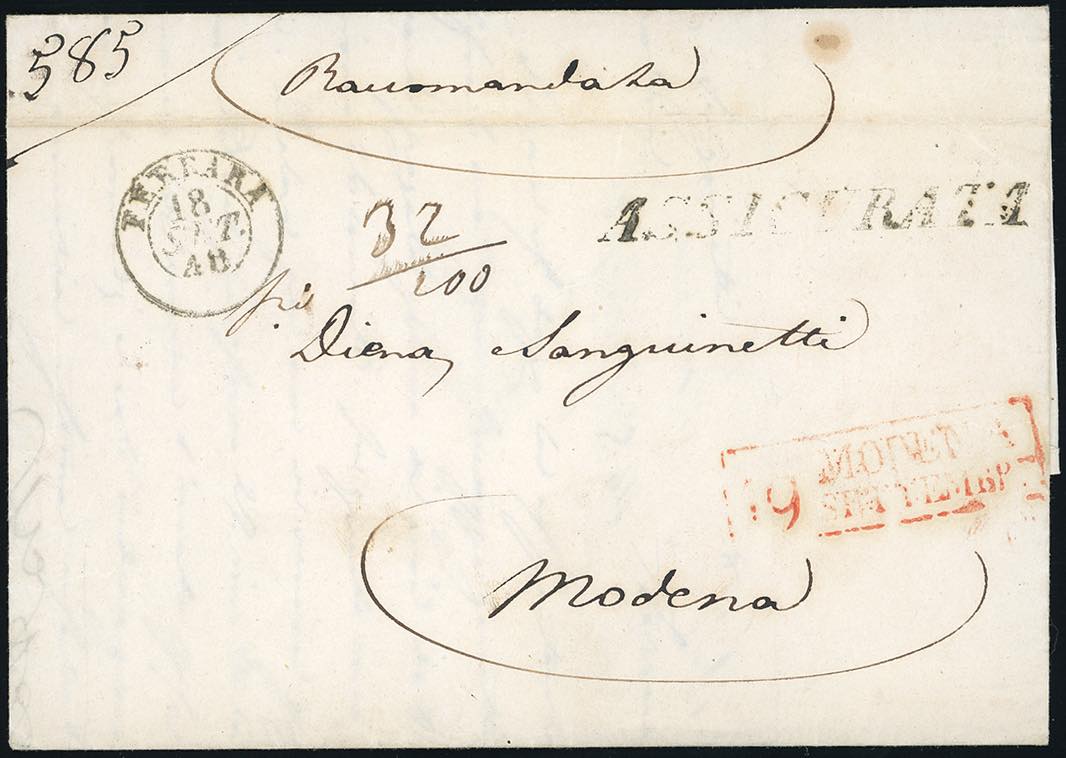 585
Raccomandata
FERRARA
18
SET.
48
ASSICURATA
32
100
Diena, Sanguinetti
MODENA
19 SETTEMBR
Modena